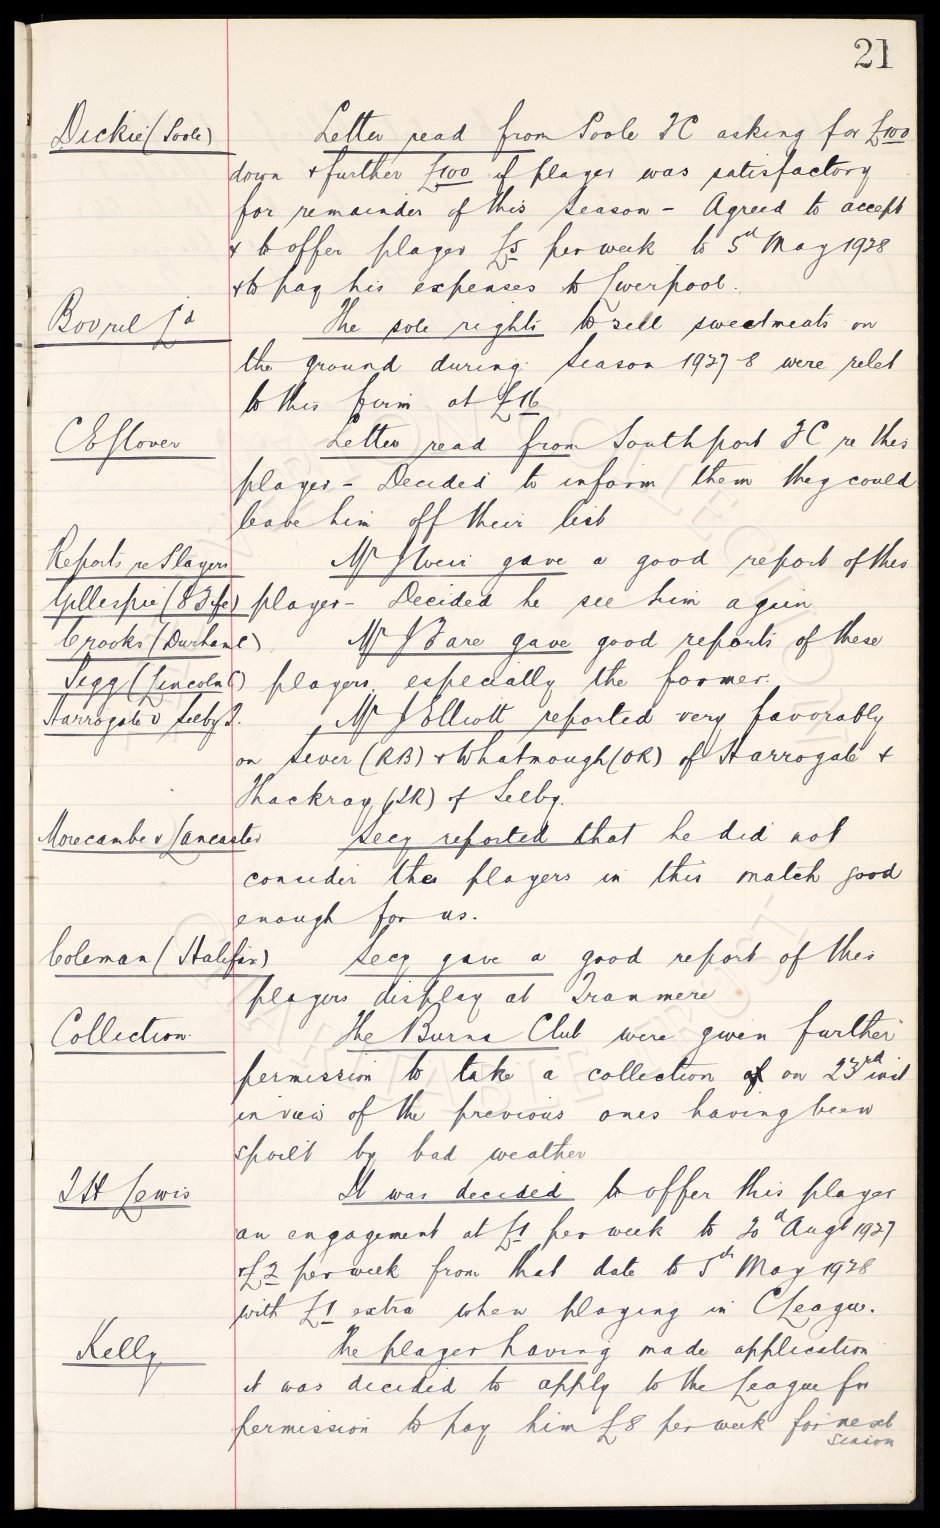 21
Dickie (Poole) Letter read from Poole FC asking for £100
down & further £100 if player was satisfactory
for remainder of this season - Agreed to accept
& to offer player £5 per week to 5th May 1928
& to pay his expenses to Liverpool.
Bovril Ld The sole rights to sell sweetmeats on
the ground during season 1927-8 were relet
to this firm at £16
C E Glover Letter read from Southport FC re this
player - Decided to inform them they could
leave him off their list
Reports re Players Mr J Weir gave a good report of this
Gillespie (E Fife) player - Decided he see him again
Crooks (Durham C) Mr J Fare gave good reports of these
Pegg (Lincoln C) players especially the former.
Harrogate v Selby T. Mr J Elliott reported very favorably
on Sever (RB) & Whatmough (OR) of Harrogate &
Thackray (IR) of Selby.
Morecambe v Lancaster Secy reported that he did not
consider the players in this match good
enough for us.
Coleman (Halifax) Secy gave a good report of this
players display at Tranmere
Collection The Burns Club were given further
permission to take a collection on 23rd inst
in view of the previous ones having been
spoilt by bad weather
T H Lewis It was decided to offer this player
an engagement at £1 per week to 20th Augt 1927
& £2 per week from that date to 5th May 1928
with £1 extra when playing in C League.
Kelly The player having made application
it was decided to apply to the League for
permission to pay him £8 per week for next
season